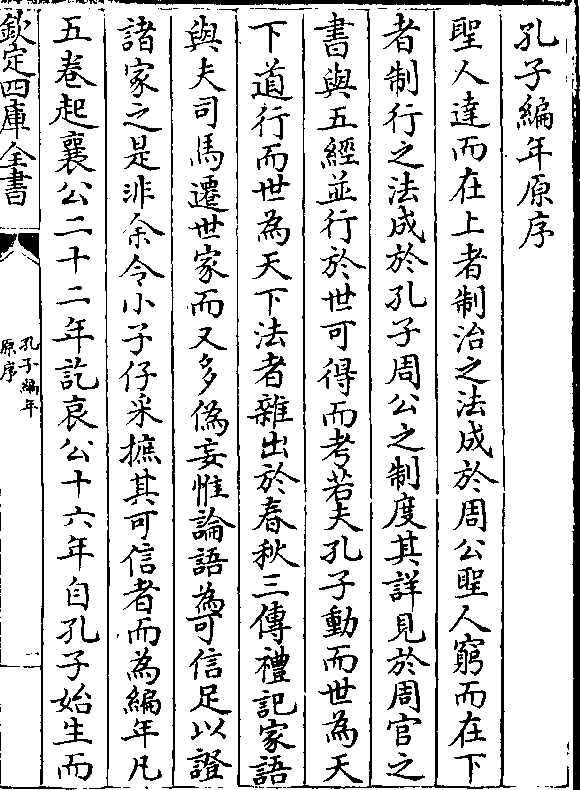 孔子編年原序
聖人達而在上者制治之法成於周公聖人窮而在下
者制行之法成於孔子周公之制度其詳見於周官之
書與五經並行於世可得而考若夫孔子動而世為天
下道行而世為天下法者雜出於春秋三傳禮記家語
與夫司馬遷世家而又多偽妄惟論語為可信足以證
諸家之是非余令小子仔采摭其可信者而為編年凡
五卷起襄公二十二年訖哀公十六年自孔子始生而
欽定四庫全書
孔子編年
原序
一